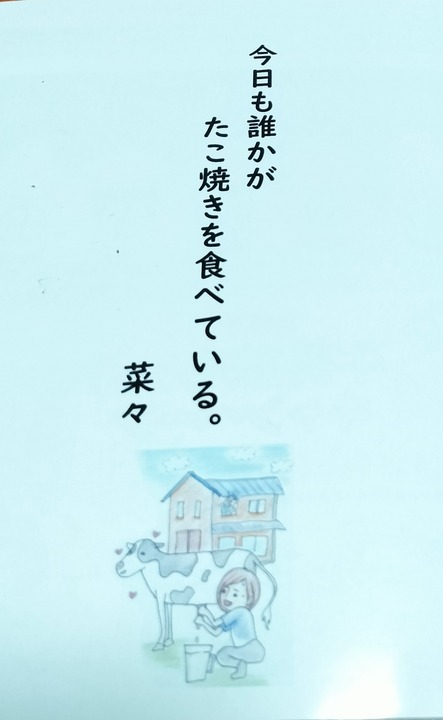 今日も誰かが
たこ焼きを食べている。
菜々